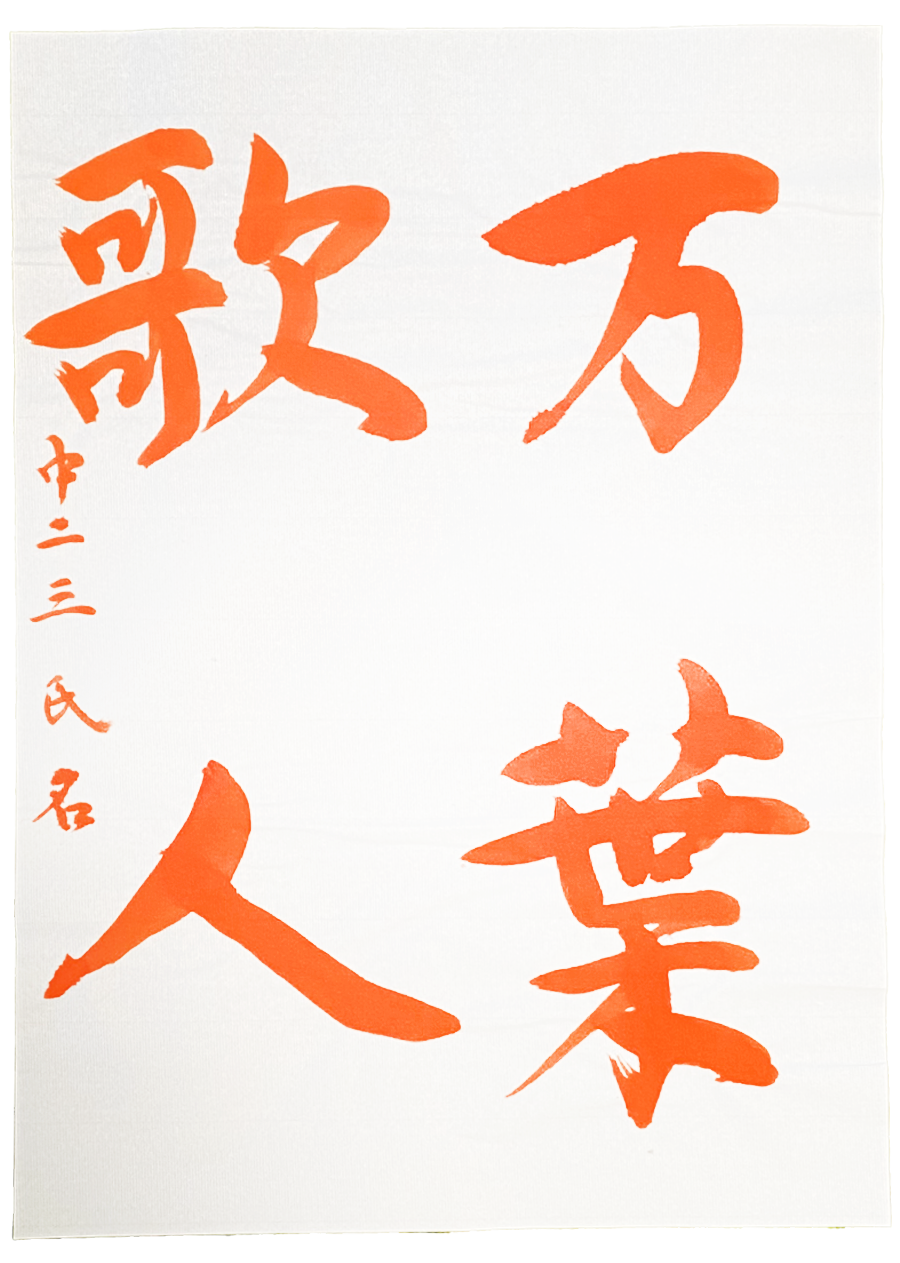 万葉
歌人
中二三 氏名